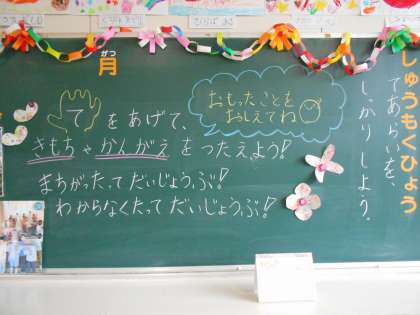 がつ
月
てをあげて、
おもったことを
おしえてね
きもちやかんがえをつたえよう!
まちがったってだいじょうぶ!
わからなくたってだいじょうぶ!
しゅうもくひょう
てあらいを、
しっかりしよう。